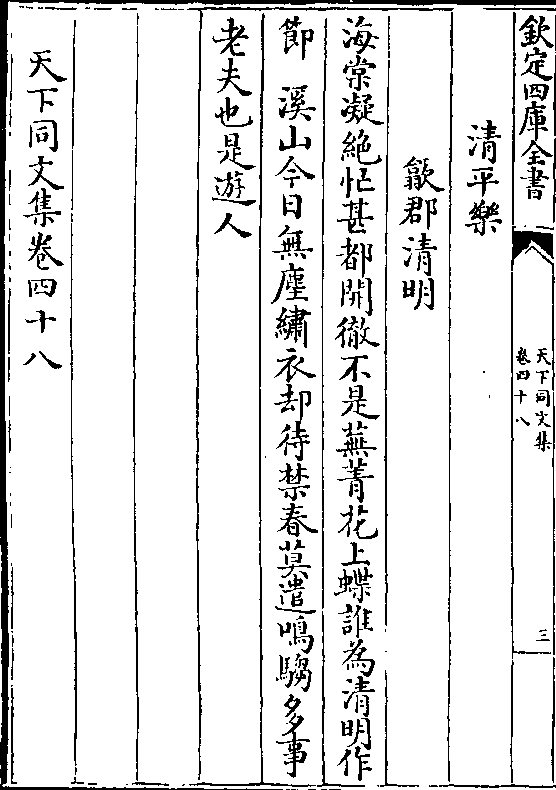 欽定四庫全書
天下同文集
卷四十八
三
清平樂
歙郡清明
海棠凝絶忙甚都開徹不是蕪菁花上蝶誰為清明作
節　溪山今日無塵繡衣却待禁春莫遣鳴騶多事
老夫也是遊人
天下同文集卷四十八